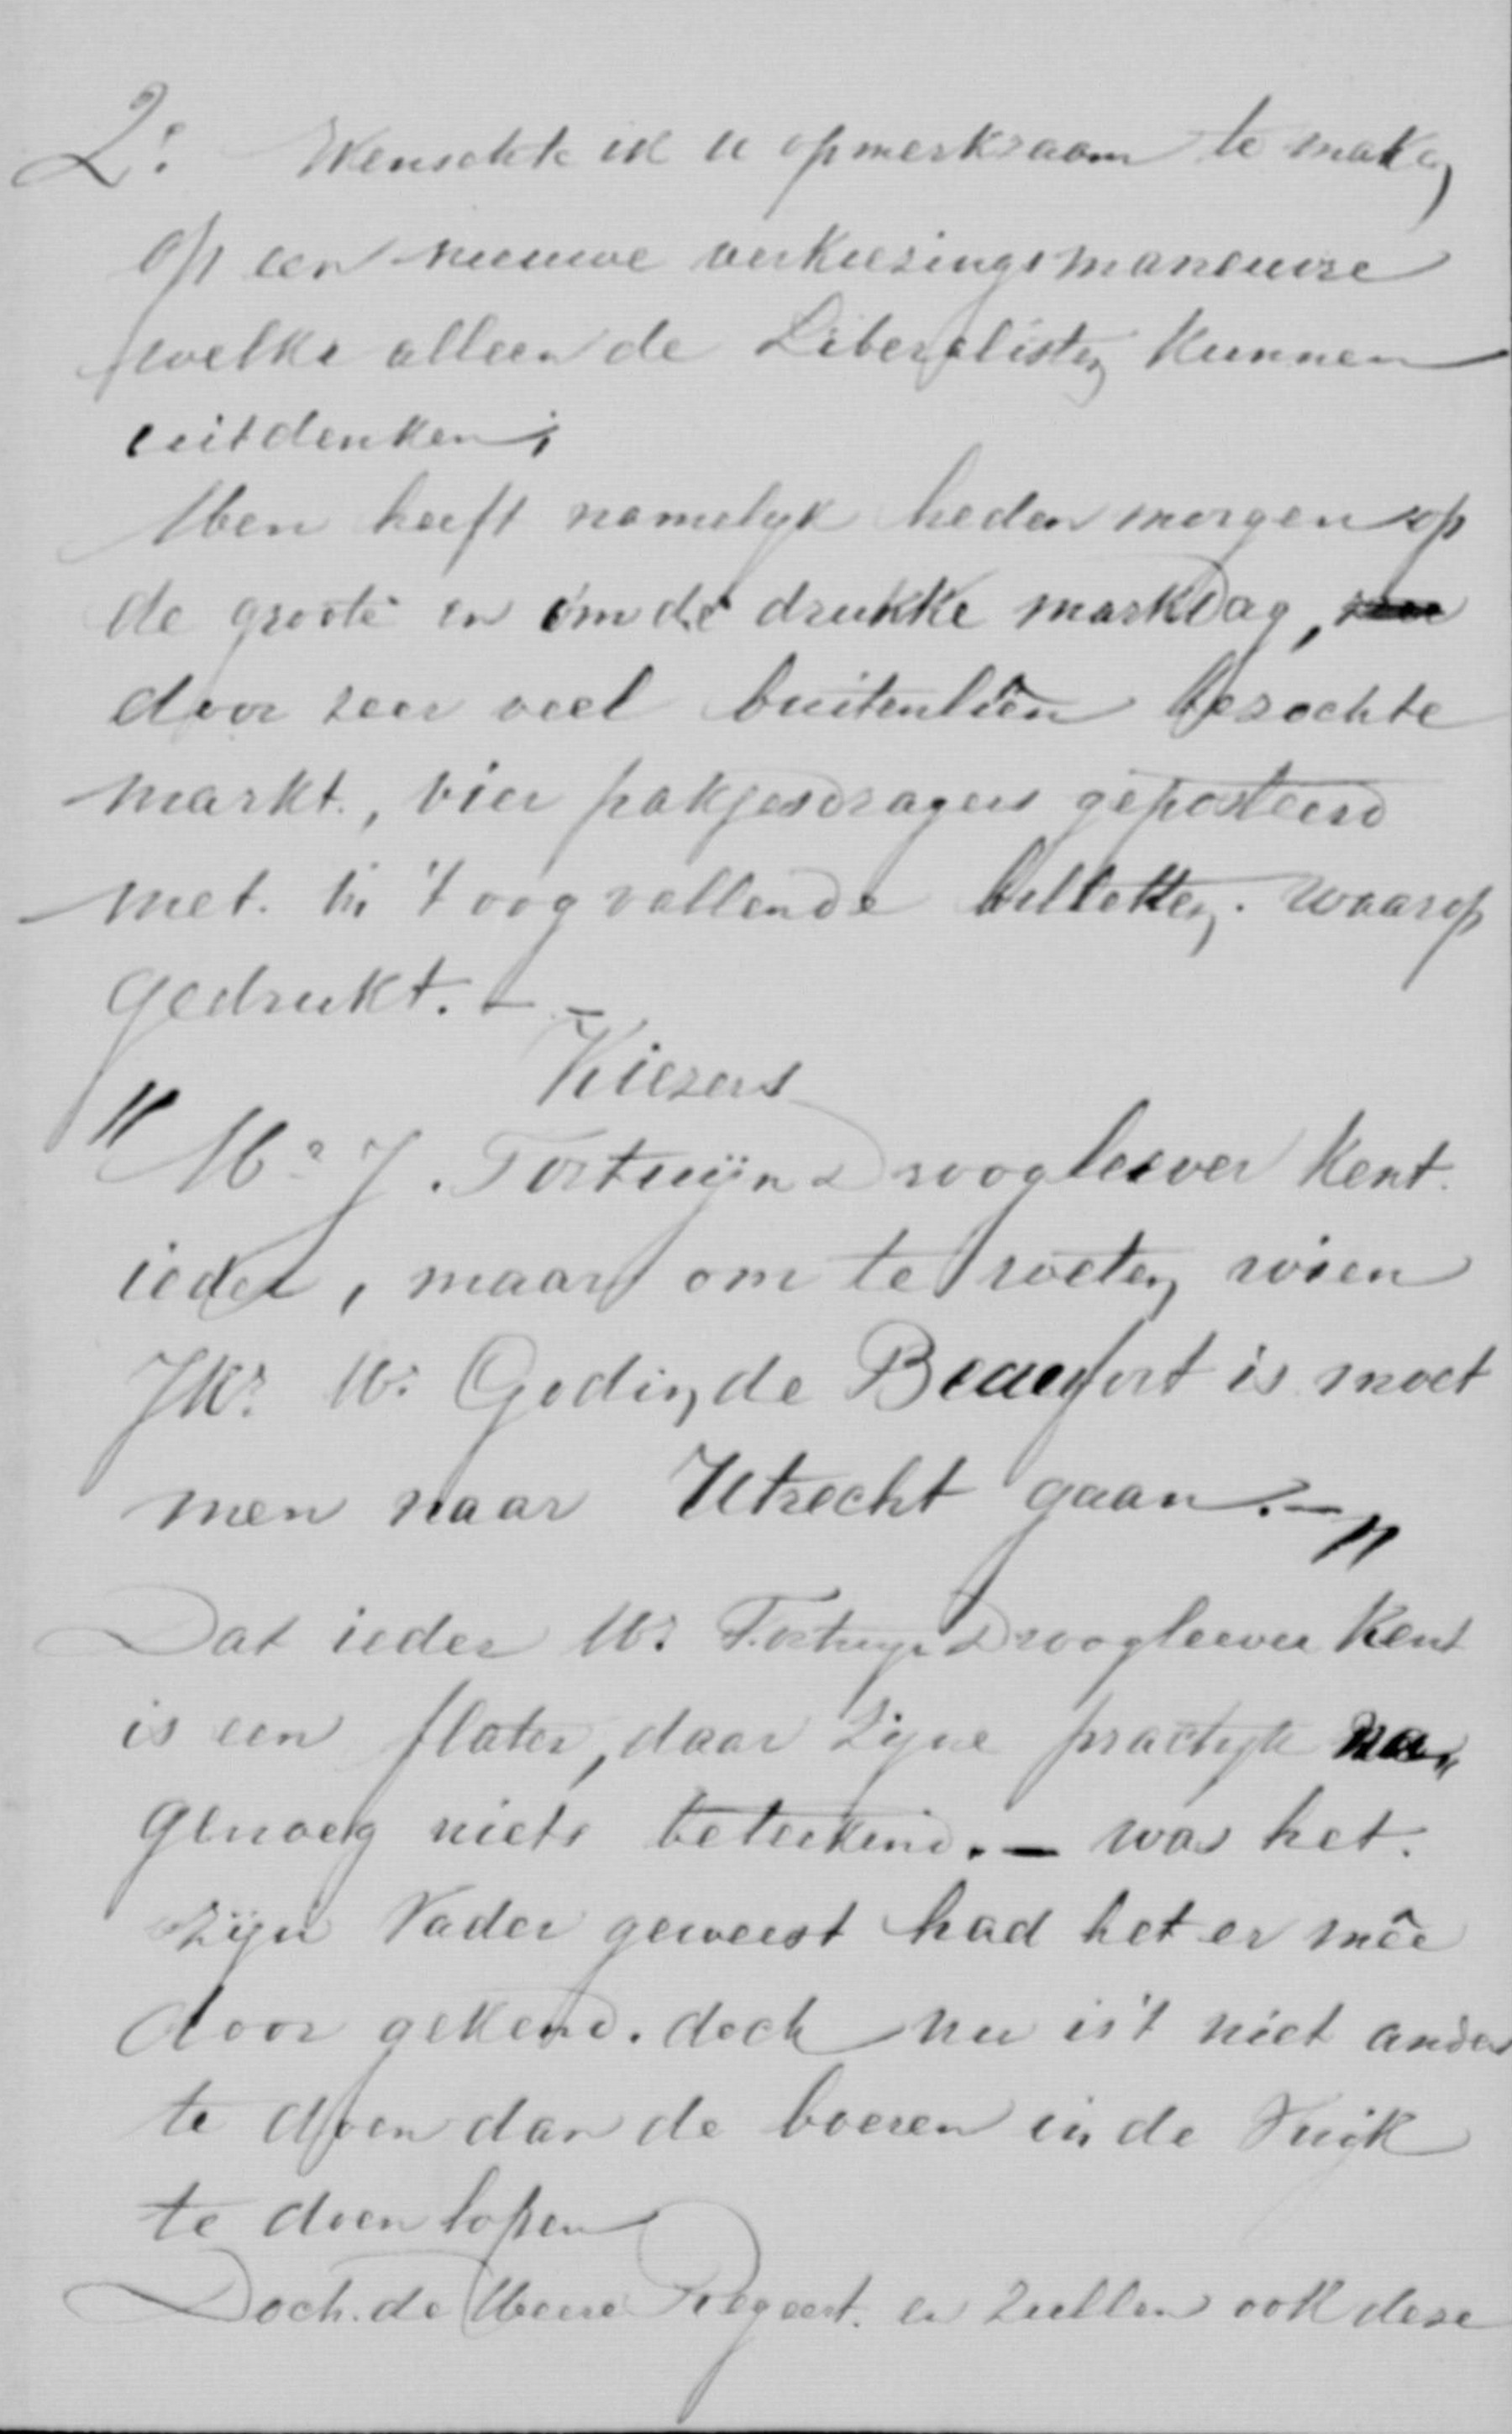 2e. Wenschte ik u opmerkzaam te maken
op een nieuwe verkiezingsmaneuvre
welke alleen de Liberalisten kunnen
uitdenken;
Men heeft namelyk heden morgen op
de groote en om de drukke markdag,
door zeer veel buitenliên bezochte
markt, vier pakjesdragers geposteerd
met in 't oog vallende billetten. waarop
gedrukt. –
Kiezers
"Mr. J. Fortuijn Droogleever kent
ieder, maar om te weten wien
Jhr. Mr. Godin de Beaufort is moet
men naar Utrecht gaan. –"
Dat ieder Mr. Fortuyn Droogleever kent
is een flater, daar zijne practyk na„
genoeg niets beteekend. – was het
zijn Vader geweest had het er mêe
door gekend. doch nu is 't niet anders
te doen dan de boeren in de
te doen lopen
Doch. de Heere Regeert. en zullen ook deze